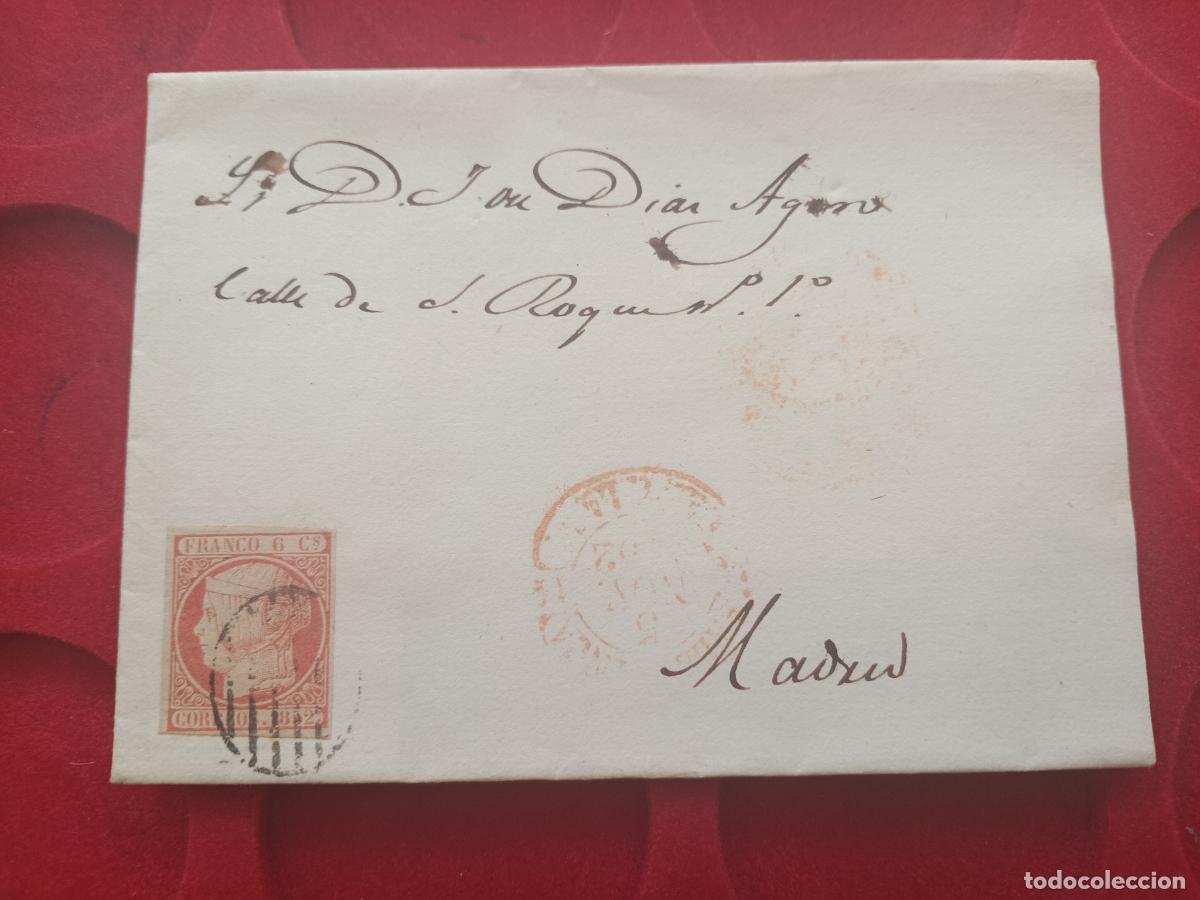 Sr D. Jou Diar Agero
Calle de S. Roque nº. 1º
FRANCO 6 Cs
CORREOS. 1852
5
52
Madrid
todocoleccion